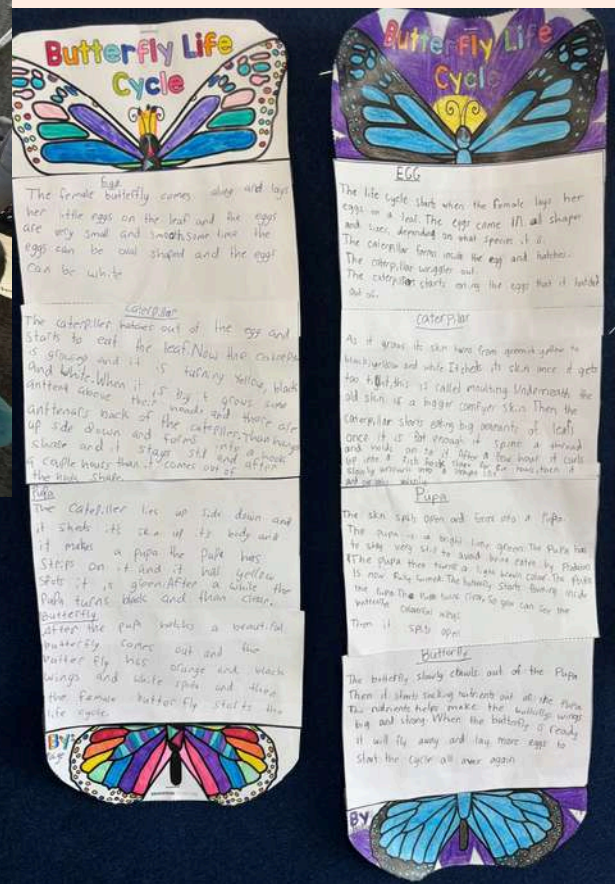 Butterfly Life
Cycle
Egg
The female butterfly comes along and lays
her little eggs on the leaf and the eggs
are very small and smooth some time the
eggs can be oval shaped and the eggs
can be white
Caterpillar
The caterpiller hatches out of the egg and
starts to eat the leaf. Now the
is growing and it is turning yellow, black
and white. When it is big it grows some
above and there are
back of the caterpiller. Than hangs
up side down and forms into a hook
shape and it stays still and after
a couple hours than it comes out of
the hook shape
Pupa
The Caterpiller lies up side down and
it sheds it's skin of its body and
it makes a pupa the pupa has
strips on it and it has yellow
spots it is green. After a while the
Pupa turns black and than clear.
Butterfly
After the pupa hatches a beautiful
butterfly comes out and the
butter fly has orange and black
wings and white spots and then
the female butter fly starts the
life cycle.
By:
Butterfly Life
Cycle
EGG
The life cycle starts when the female lays her
eggs on a leaf. The eggs come in all shapes
and sizes, depending on what species it is.
The caterpillar forms inside the egg and hatches.
The caterpillar wriggles out.
The caterpillar starts eating the eggs that it hatched
out of.
Caterpillar
As it grows its skin turns from greenish yellow to
black, yellow and white. It sheds its skin once it gets
too tight, this is called moulting. Underneath the
old skin is a bigger comfyer skin. Then the
caterpillar starts eating big amounts of leafs
once it is fat enough it spins a thread
and holds on to it. After a few hours it curls
up into a fish hook shape for five hours, then it
slowly
Pupa
The skin splits open and forms into a Pupa.
The pupa is a bright lime green. The Pupa has
to stay very still to avoid being eaten by Predators
The pupa then turns a light brown color. The Pupa
is now fully formed. The butterfly starts forming inside
the pupa. The Pupa turns clear, so you can see the
butterflie wings
Then it splits open
Butterfly
The butterfly slowly crawls out of the Pupa
Then it starts sucking nutrients out of the Pupa.
The nutrients helps make the butterflys wings
big and strong. When the butterfly is ready
it will fly away and lay more eggs to
start the cycle all over again
By